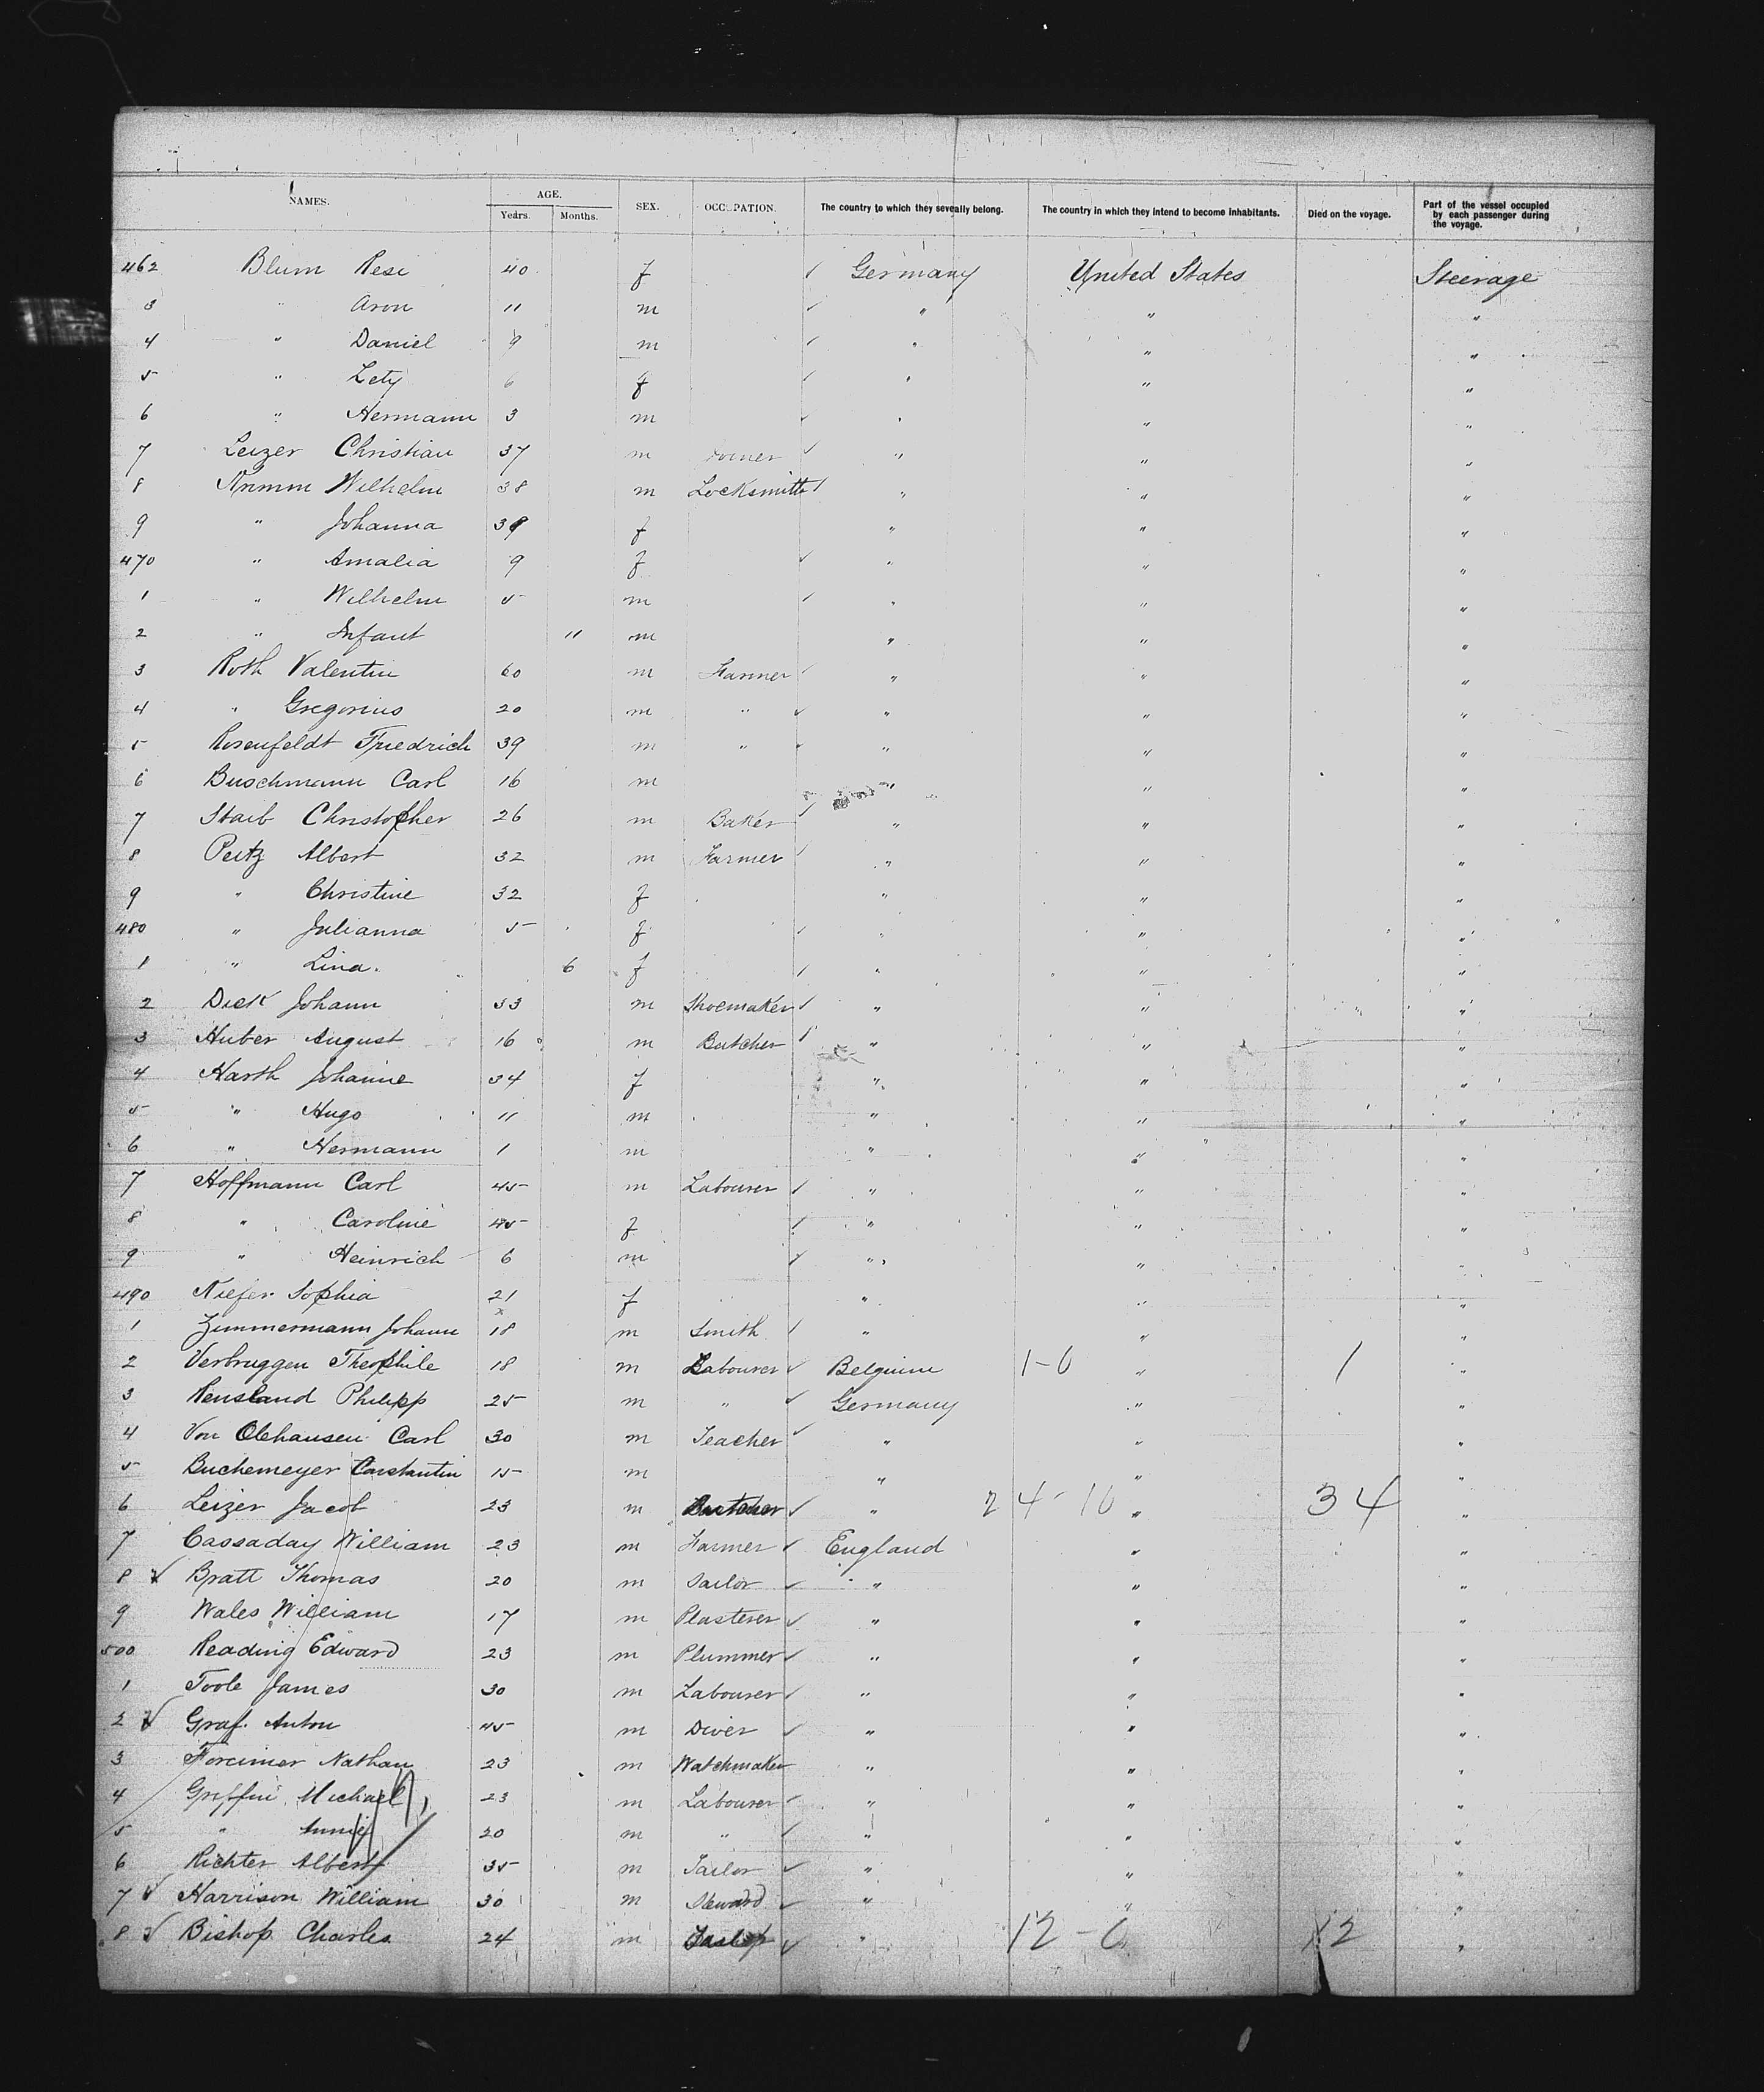 NAMES. AGE. SEX. OCCUPATION. The country to which they severally belong. The country in which they intend to become inhabitants. Died on the voyage. Part of the vessel occupied by each passenger during the voyage.
Years. Months.
462 Blum Resi 40 f Germany United States Steerage
3 " Aron 11 m " " "
4 " Daniel 9 m " " "
5 " Lety 6 f " " "
6 " Hermann 3 m " " "
7 Leizer Christian 37 m " " "
8 Wilhelm 38 m Locksmith " " "
9 " Johanna 39 f " " "
470 " Amalia 9 f " " "
1 " Wilhelm 5 m " " "
2 " Infant 11 m " " "
3 Roth Valentin 60 m Farmer " " "
4 " Gregorius 20 m " " " "
5 Rosenfeldt Friedrich 39 m " " " "
6 Buschmann Carl 16 m " " "
7 Staib Christopher 26 m Baker " " "
8 Peitz Albert 32 m Farmer " " "
9 " Christine 32 f " " "
480 " Julianna 5 f " " "
1 " Lina 6 f " " "
2 Dick Johann 53 m Shoemaker " " "
3 Huber August 16 m Butcher " " "
4 Harth Johanne 34 f " " "
5 " Hugo 11 m " " "
6 " Hermann 1 m " " "
7 Hoffmann Carl 45 m Labourer " " "
8 " Caroline 45 f " " "
9 " Heinrich 6 m " " "
490 Niefer Sophia 21 f " " "
1 Zimmermann Johann 18 m Smith " " "
2 Verbruggen Theophile 18 m Labourer Belgium 1-0 " 1 "
3 Rensland Philipp 25 m " Germany " "
4 Von Olehausen Carl 30 m Teacher " " "
5 Buchemeyer Constantin 15 m " " "
6 Leizer Jacob 23 m Butcher " 24-10 " 34 "
7 Cassaday William 23 m Farmer England " "
8 Bratt Thomas 20 m Sailor " " "
9 Wales William 17 m Plasterer " " "
500 Reading Edward 23 m Plummer " " "
1 Toole James 30 m Labourer " " "
2 Graf Anton 45 m Diver " " "
3 Forcimer Nathan 23 m Watchmaker " " "
4 Griffin Michael 23 m Labourer " " "
5 " Annie 20 m " " " "
6 Richter Albert 35 m Tailor " " "
7 Harrison William 30 m Steward " " "
8 Bishop Charles 24 m " 12-0 12 "